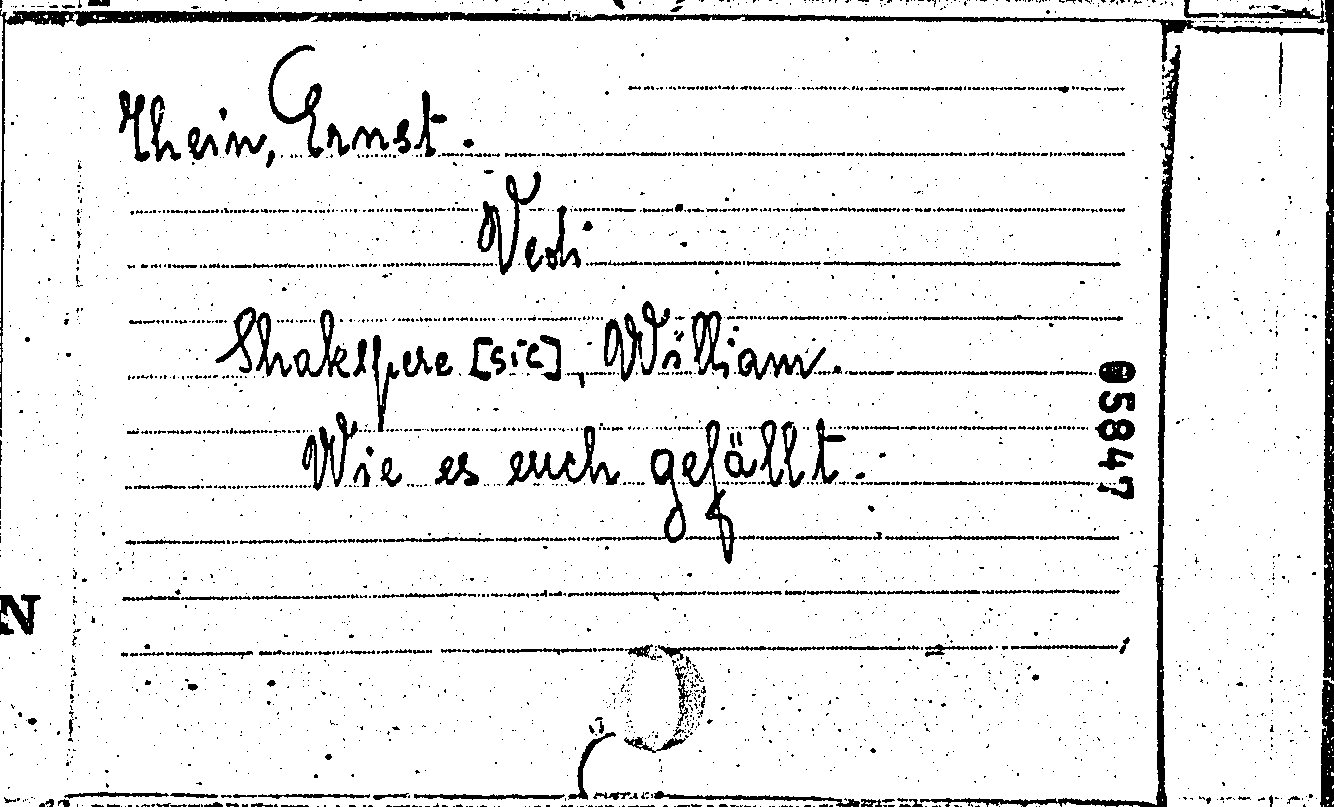 Thein, Ernst.
Vedi
Shakespere [sic], William.
Wie es euch gefällt.
05847
N